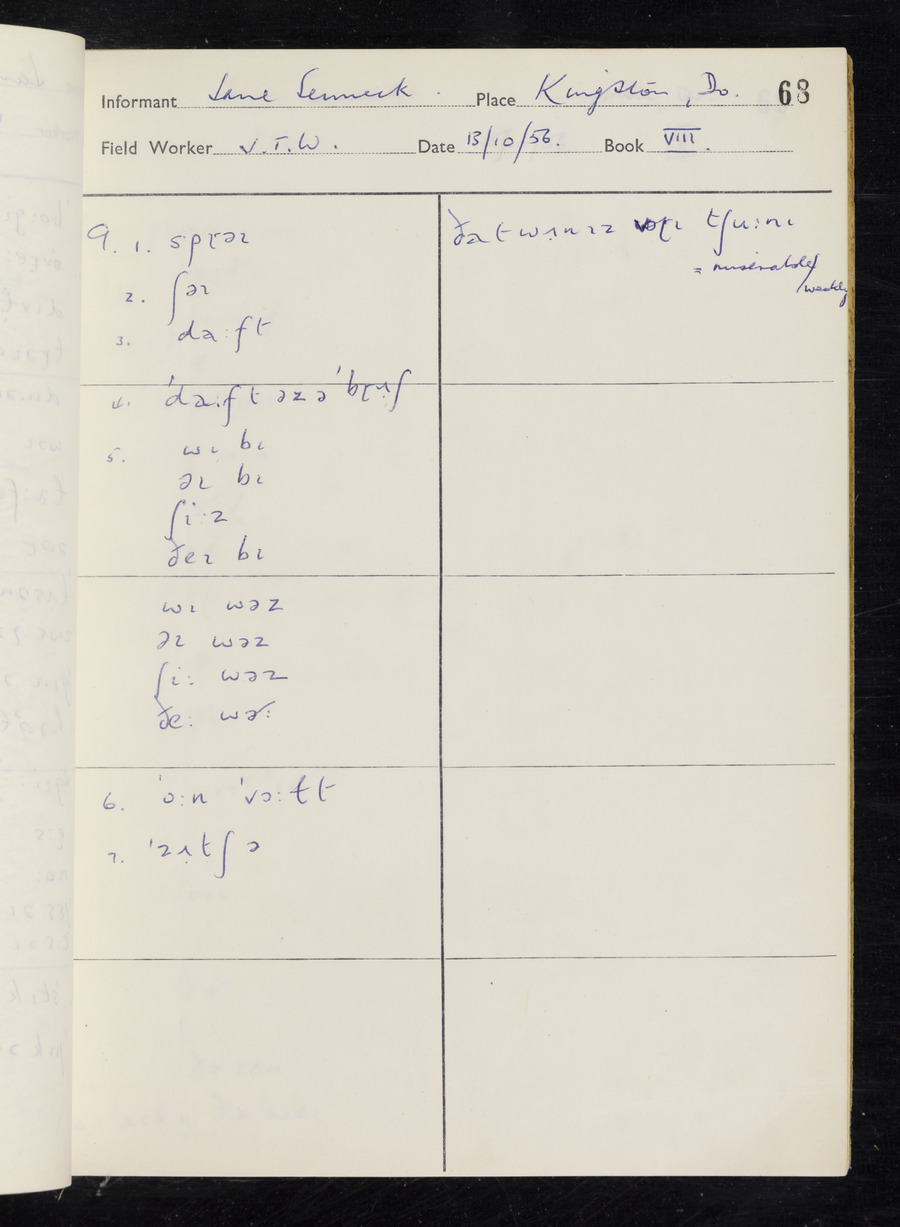 Informant Jane Senneck. Place Kingston, Do. 68
Field Worker V.T.W. Date 13/10/56. Book VIII.
9. 1. spɽəɪ
2. ʃəɪ
3. da:ft
4. 'da:ft əz ə
5. wɪ bɪ
əɪ bɪ
ʃi:z
ðeɪ bɪ
wɪ wəz
əɪ wəz
ʃi: wəz
ðe: wə:
6. 'ɔ:n 'vɔ:ɫt
7. 'zɪtʃ ə
ðat wɪnɪz tʃu:nɪ
= miserable/
/weakly